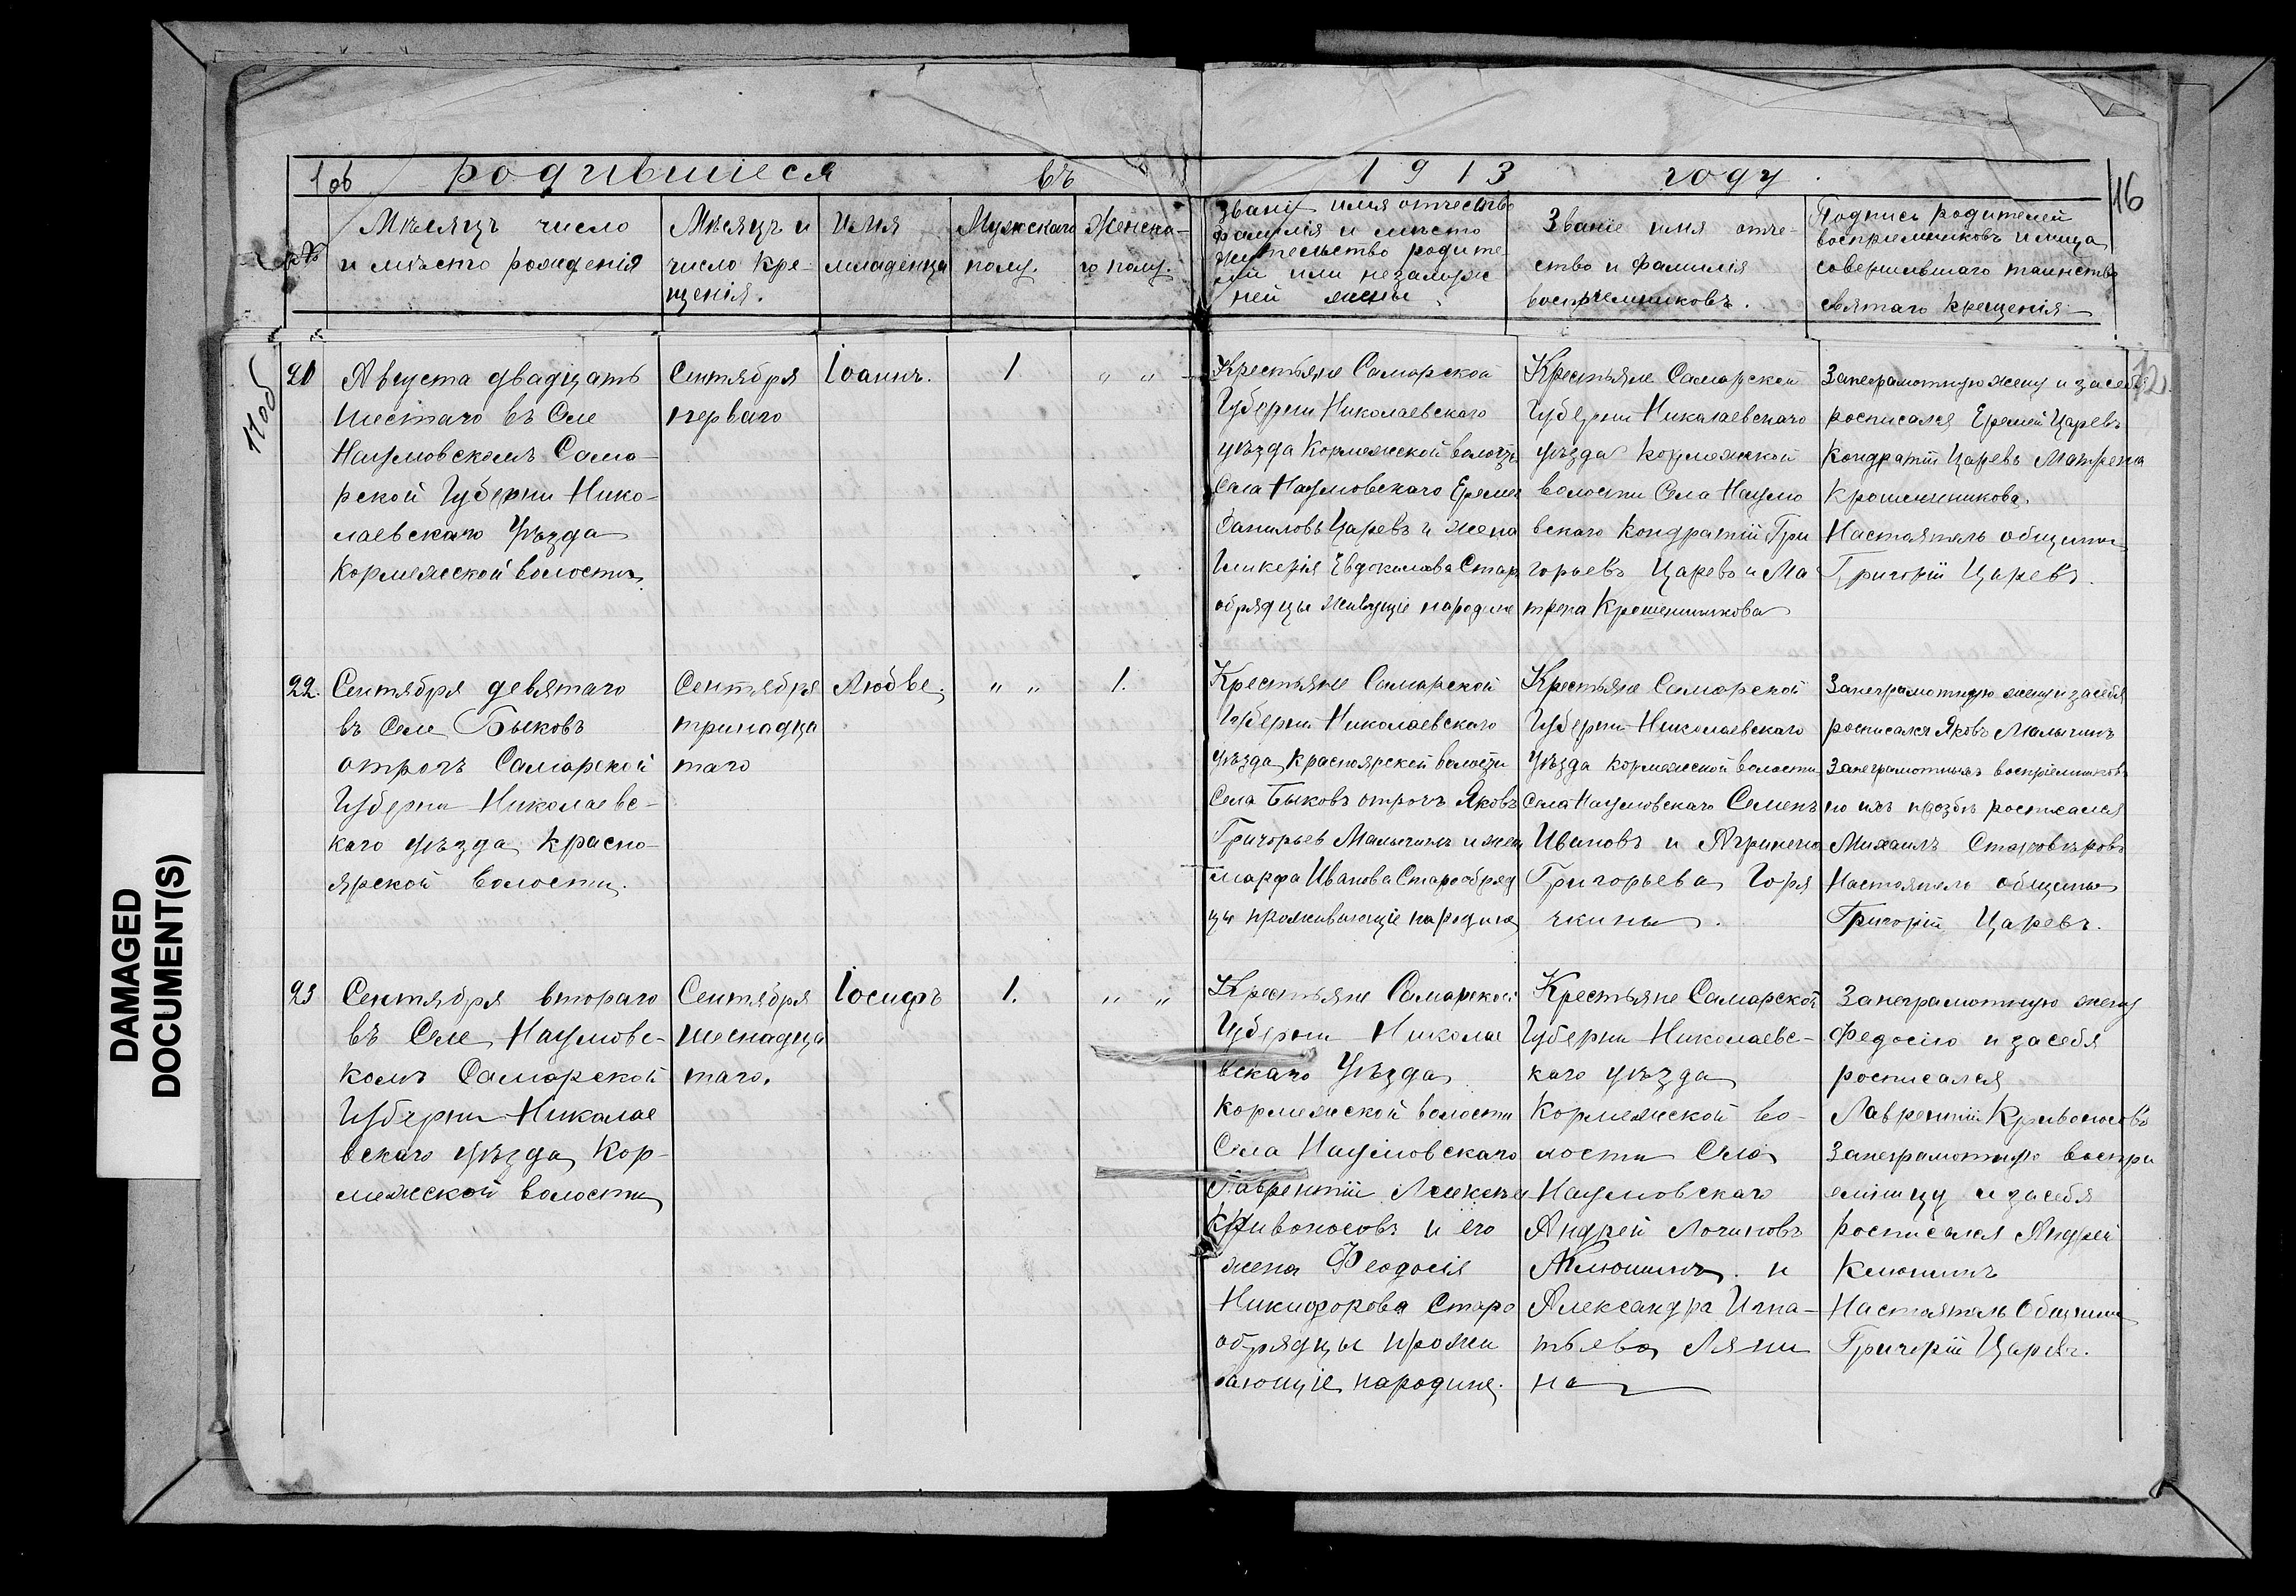 1 об родившіеся въ
1913 году
116
№
Мѣсяцъ число
и мѣсто рожденія
Мѣсяцъ и
число кре-
щенія.
Имя
младенца
Мужскаго
полу.
Женска-
го полу.
Званіе имя отчество
фамилія и мѣсто
жительство родите
ли или незамуж
ней жены
Званіе имя отче-
ство и фамилія
воспріемниковъ.
Подпись родителей
воспріемниковъ и лица
совершившаго таинство
святаго крещенія
11об
12
21
Августа двадцать
шестаго въ Селе
Наумовскомъ Сама-
рской Губерни Нико-
лаевскаго Уѣзда
Кормежской волости
Сентября
перваго
Іоаннъ.
1
" "
Крестьяне Самарской
Губерни Николаевскаго
уѣзда Кормежской волости
Села Наумовскаго Еремей
Даниловъ Царевъ и жена
Гликерія Евдокимова Старо
обрядцы живущіе народине
Крестьяне Самарской
Губерни Николаевскаго
уѣзда Кормежской
волости Села Наумо
вскаго Кондратій Гри
горьевъ Царевъ и Ма
трена Крошенинникова
Занеграмотную жену и засебя
росписался Еремей Царевъ
Кондратій Царевъ Матрена
Крошенинникова
Настоятель общины
Григорій Царевъ.
22.
Сентября девятаго
въ Селе Быковъ
отрогъ Самарской
Губерни Николаевс-
каго уѣзда Красно-
ярской волости.
Сентября
тринадца
таго
Любве.
" "
1.
Крестьяне Самарской
Губерни Николаевскаго
уѣзда Красноярской волости
Села Быковъ отрогъ Яковъ
Григорьев Малыгинъ и жена
марфа Иванова Старообряд
цы проживающіе народине
Крестьяне Самарской
Губерни Николаевскаго
Уѣзда Кормежской волости
Села Наумовскаго Семенъ
Ивановъ и Агрипена
Григорьева Горя
чкины.
Занеграмотную жену изасебя
росписался Яковъ Малыгинъ
Занеграмотныхъ воспріемниковъ
по ихъ прозбѣ росписался
Михаилъ Староверовъ
Настоятель общины
Григорій Царевъ.
23
Сентября втораго
въ Селе Наумовс-
комъ Самарской
Губерни Николае
вскаго уѣзда Кор-
межской волости
Сентября
шеснадца
таго.
Іосифъ
1.
" "
Крестьяне Самарской
Губерни Николае
вскаго Уѣзда
Кормежской волости
Села Наумовскаго
Лаврентій Алексѣев
Кривоносовъ и его
жена Феодосія
Никифорова Старо
обрядцы прожи
вающіе народине.
Крестьяне Самарской
Губерни Николаевс-
каго уѣзда
Кормежской во-
лости Села
Наумовскаго
Андрей Логиновъ
Клюшинъ и
Александра Игна-
тьева Ляпи
на
Занеграмотную жену
Федосію и засебя
росписался
Лаврентій Кривоносовъ
Занеграмотную воспри
емницу и засебя
росписался Андрей
Клюшинъ
Настоятель Общины
Григорій Царевъ.
DAMAGED
DOCUMENT(S)